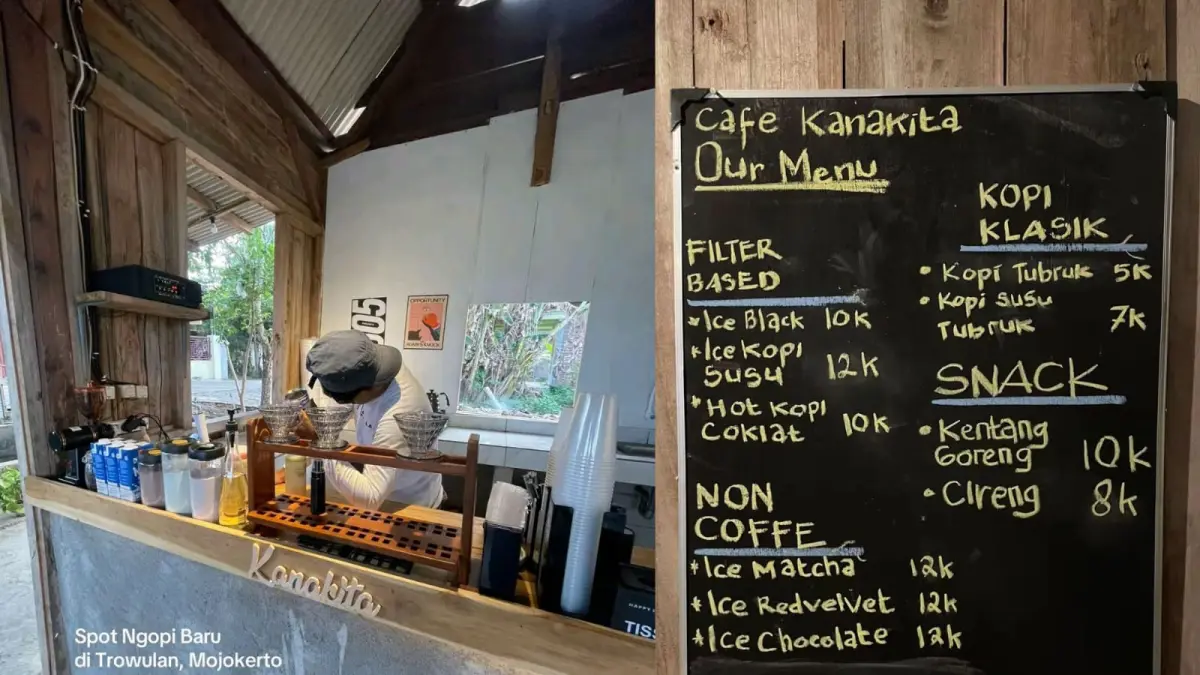 905
OPPORTUNITY
Kanakita
TISS
Spot Ngopi Baru
di Trowulan, Mojokerto
Cafe Kanakita
Our Menu
FILTER
BASED
*Ice Black 10k
*Ice Kopi
Susu 12k
*Hot Kopi
Coklat 10k
NON
COFFE
*Ice Matcha 12k
*Ice Redvelvet 12k
*Ice Chocolate 12k
KOPI
KLASIK
• Kopi Tubruk 5k
• Kopi Susu
Tubruk 7k
SNACK
• Kentang
Goreng 10k
• Cireng 8k